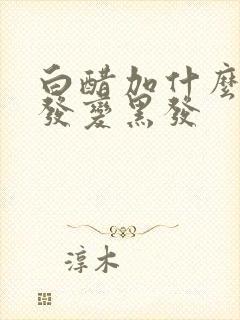 白醋加什麼
發變黑發
淳木